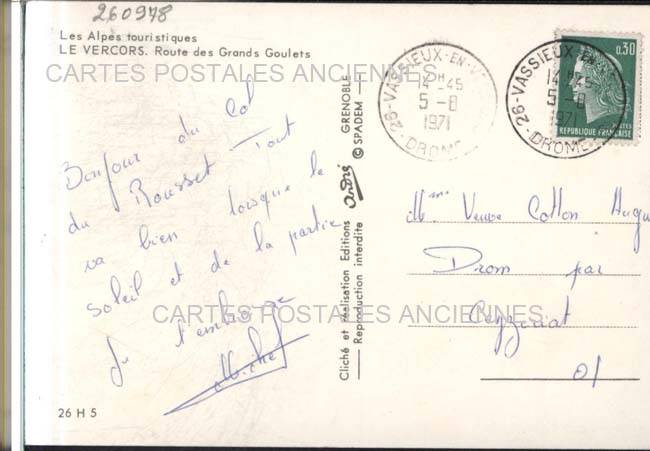 260978
Les Alpes touristiques
LE VERCORS. Route des Grands Goulets
CARTES POSTALES ANCIENNES
Bonjour du Col
du Rousset Tout
va bien lorsque le
soleil est de la partie
Je t'embrasse
Michel
CARTES POSTALES ANCIENNES
26 H 5
Cliché et réalisation Editions André GRENOBLE
Reproduction interdite © SPADEM
26-VASSIEUX-EN-V
14H45
5-8
1971
DROME
26-VASSIEUX-EN-
14H45
5-8
1971
DROME
0,30
POSTES
REPUBLIQUE FRANÇAISE
Mme Veuve Cotton Hugu
Drom par
Ceyzériat
01